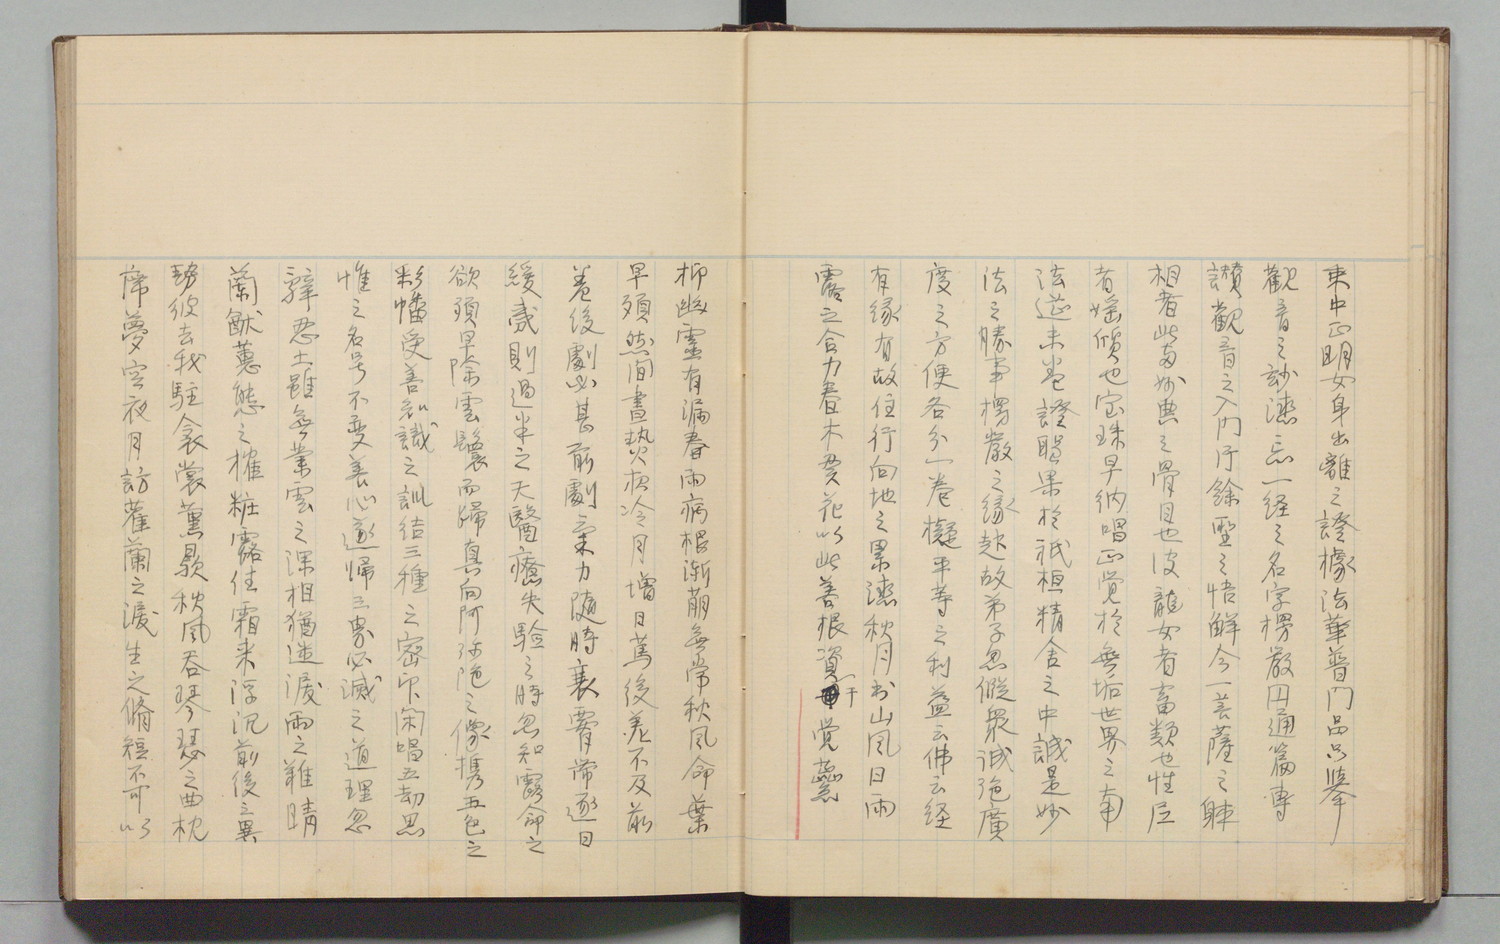 東中正明女身出離之證據法華普門品品挙
観音之妙濟忘一経之名字楞厳円通篇専
讃観音之入門斥餘聖之悟解今一菩薩之躰
相者此等妙典之骨目也彼龍女者畜類也性
者婬傾也宝珠早納唱正覚於無垢世界之南
法莚未巻證賜果於祇桓精舎之中誠是妙
法之勝事楞厳之縁起故弟子忽催衆誠弛廣
度之方便各分一巻擬平等之利益云佛云経
有縁有故住行向地之累濟秋月出山風日雨
露之合力春木発花以此善根資于覚蘂
抑幽霊有漏春雨病根漸萠無常秋風命葉
早頽然間晝熱夜冷月増日篤後差不及前
差後劇必甚前劇気力随時衰羸常逐日
緩歳則過半之天醫療失驗之時忽知露命之
欲頽早除雲鬟而歸真向阿弥陀之像携五色之
彩幡受善知識之訓結三種之密印閑唱五劫思
惟之名号不変善心遂歸三界必滅之道理忽
辞忍土雖無業雲之深相猶迷涙雨之難晴
蘭猷蕙態之摧粧露往霜来浮沉前後之異
勢彼去我駐衾裳薫歇秋風呑琴瑟之曲枕
席夢空夜月訪蘿蘭之涙生之脩短不可以